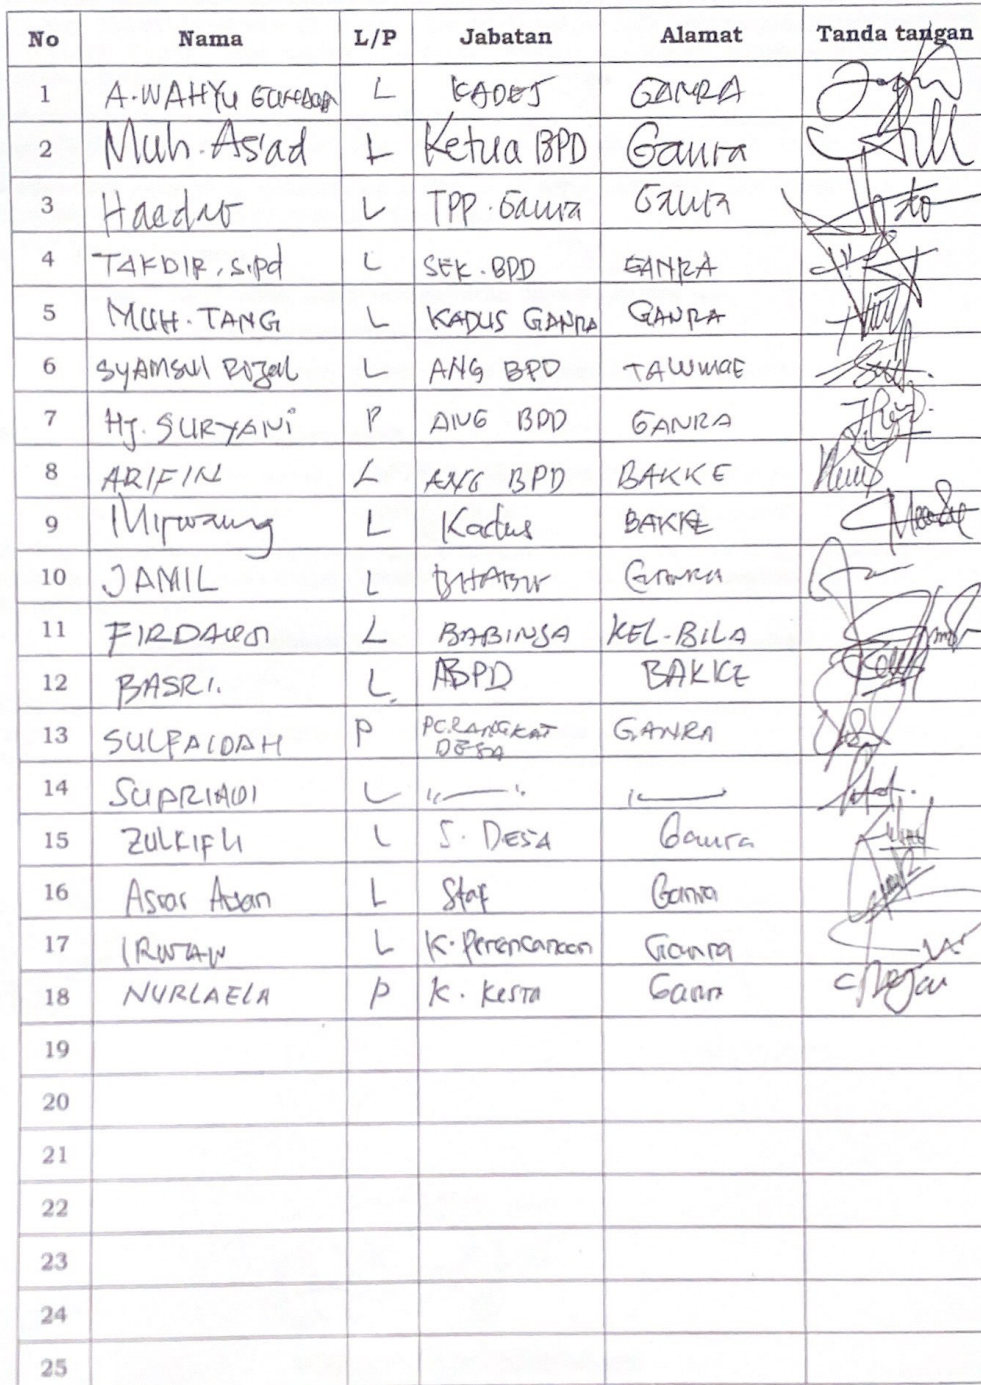 No Nama L/P Jabatan Alamat Tanda tangan
1 A.WAHYU L KADES GANRA
2 Muh. As'ad L Ketua BPD Ganra
3 L TPP. Ganra Ganra
4 TAKDIR, S.Pd L SEK. BPD GANRA
5 MUH. TANG L KADUS GANRA GANRA
6 SYAMSUL Rizal L ANG BPD TALUMAE
7 HJ. SURYANI P ANG BPD GANRA
8 ARIFIN L ANG BPD BAKKE
9 L Kadus BAKKE
10 JAMIL L Ganra
11 FIRDAUS L BABINSA KEL-BILA
12 BASRI. L ABPD BAKKE
13 SULFAIDAH P PERANGKAT GANRA
DESA
14 SUPRIADI L
15 ZULKIFLI L S. DESA Ganra
16 L Staf Ganra
17 IRWAN L K. Perencanaan Ganra
18 NURLAELA P K. Kesra Ganra
19
20
21
22
23
24
25